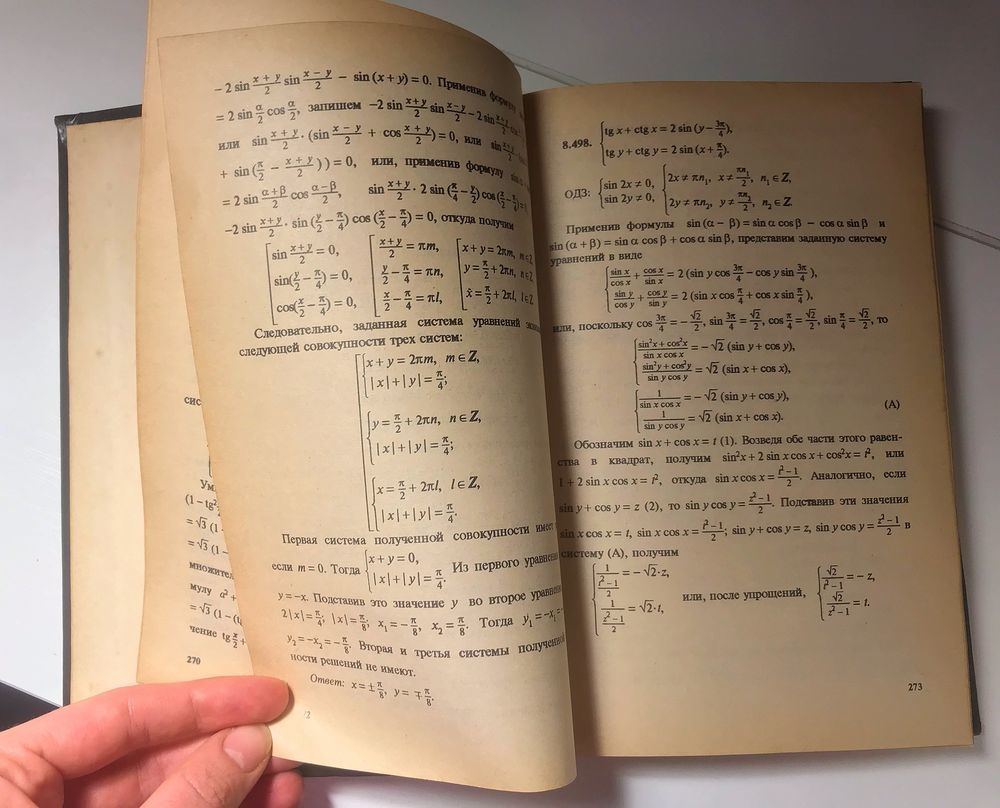 сис
Ум
(1 – tg²
= √3 (1
= √3 (1 –
множител
мулу a² +
= √3 (1 – (t
чение tg x/2 +
270
– 2 sin (x + y)/2 sin (x – y)/2 – sin (x + y) = 0. Применив формулу
= 2 sin α/2 cos α/2, запишем –2 sin (x+y)/2 sin (x–y)/2 – 2 sin
или sin (x + y)/2 · (sin (x – y)/2 + cos (x + y)/2) = 0, или sin
+ sin (π/2 – (x + y)/2 )) = 0, или, применив формулу
= 2 sin (α + β)/2 cos (α – β)/2, sin (x+y)/2 · 2 sin (π/4 – y/2) cos (x/2 – π/4) =
–2 sin (x+y)/2 · sin (y/2 – π/4) cos (x/2 – π/4) = 0, откуда получим
sin (x+y)/2 = 0, (x+y)/2 = πm, x + y = 2πm, m ∈ Z
sin(y/2 – π/4) = 0, y/2 – π/4 = πn, y = π/2 + 2πn, n ∈ Z
cos(x/2 – π/4) = 0, x/2 – π/4 = πl, x = π/2 + 2πl, l ∈ Z
Следовательно, заданная система уравнений
следующей совокупности трех систем:
x + y = 2πm, m ∈ Z,
| x | + | y | = π/4;
y = π/2 + 2πn, n ∈ Z,
| x | + | y | = π/4;
x = π/2 + 2πl, l ∈ Z,
| x | + | y | = π/4.
Первая система полученной совокупности имеет
если m = 0. Тогда { x + y = 0, | x | + | y | = π/4. Из первого уравнения
y = –x. Подставив это значение y во второе уравнение
2 | x | = π/4; | x | = π/8, x₁ = – π/8, x₂ = π/8. Тогда y₁ = –x₁ =
y₂ = –x₂ = – π/8. Вторая и третья системы полученной
ности решений не имеют.
Ответ: x = ± π/8, y = ∓ π/8.
8.498. { tg x + ctg x = 2 sin (y – 3π/4),
tg y + ctg y = 2 sin (x + π/4).
ОДЗ: { sin 2x ≠ 0, { 2x ≠ πn₁, x ≠ πn₁/2, n₁ ∈ Z,
sin 2y ≠ 0, 2y ≠ πn₂, y ≠ πn₂/2, n₂ ∈ Z.
Применив формулы sin (α – β) = sin α cos β – cos α sin β и
sin (α + β) = sin α cos β + cos α sin β, представим заданную систему
уравнений в виде
sin x/cos x + cos x/sin x = 2 (sin y cos 3π/4 – cos y sin 3π/4),
sin y/cos y + cos y/sin y = 2 (sin x cos π/4 + cos x sin π/4),
или, поскольку cos 3π/4 = – √2/2, sin 3π/4 = √2/2, cos π/4 = √2/2, sin π/4 = √2/2, то
(sin²x + cos²x)/(sin x cos x) = – √2 (sin y + cos y),
(sin²y + cos²y)/(sin y cos y) = √2 (sin x + cos x),
1/(sin x cos x) = – √2 (sin y + cos y),
1/(sin y cos y) = √2 (sin x + cos x). (A)
Обозначим sin x + cos x = t (1). Возведя обе части этого равен-
ства в квадрат, получим sin²x + 2 sin x cos x + cos²x = t², или
1 + 2 sin x cos x = t², откуда sin x cos x = (t² – 1)/2. Аналогично, если
sin y + cos y = z (2), то sin y cos y = (z² – 1)/2. Подставив эти значения
sin x cos x = t, sin x cos x = (t² – 1)/2; sin y + cos y = z, sin y cos y = (z² – 1)/2 в
систему (A), получим
1/((t² – 1)/2) = – √2 · z, или, после упрощений, √2/(t² – 1) = – z,
1/((z² – 1)/2) = √2 · t, √2/(z² – 1) = t.
273